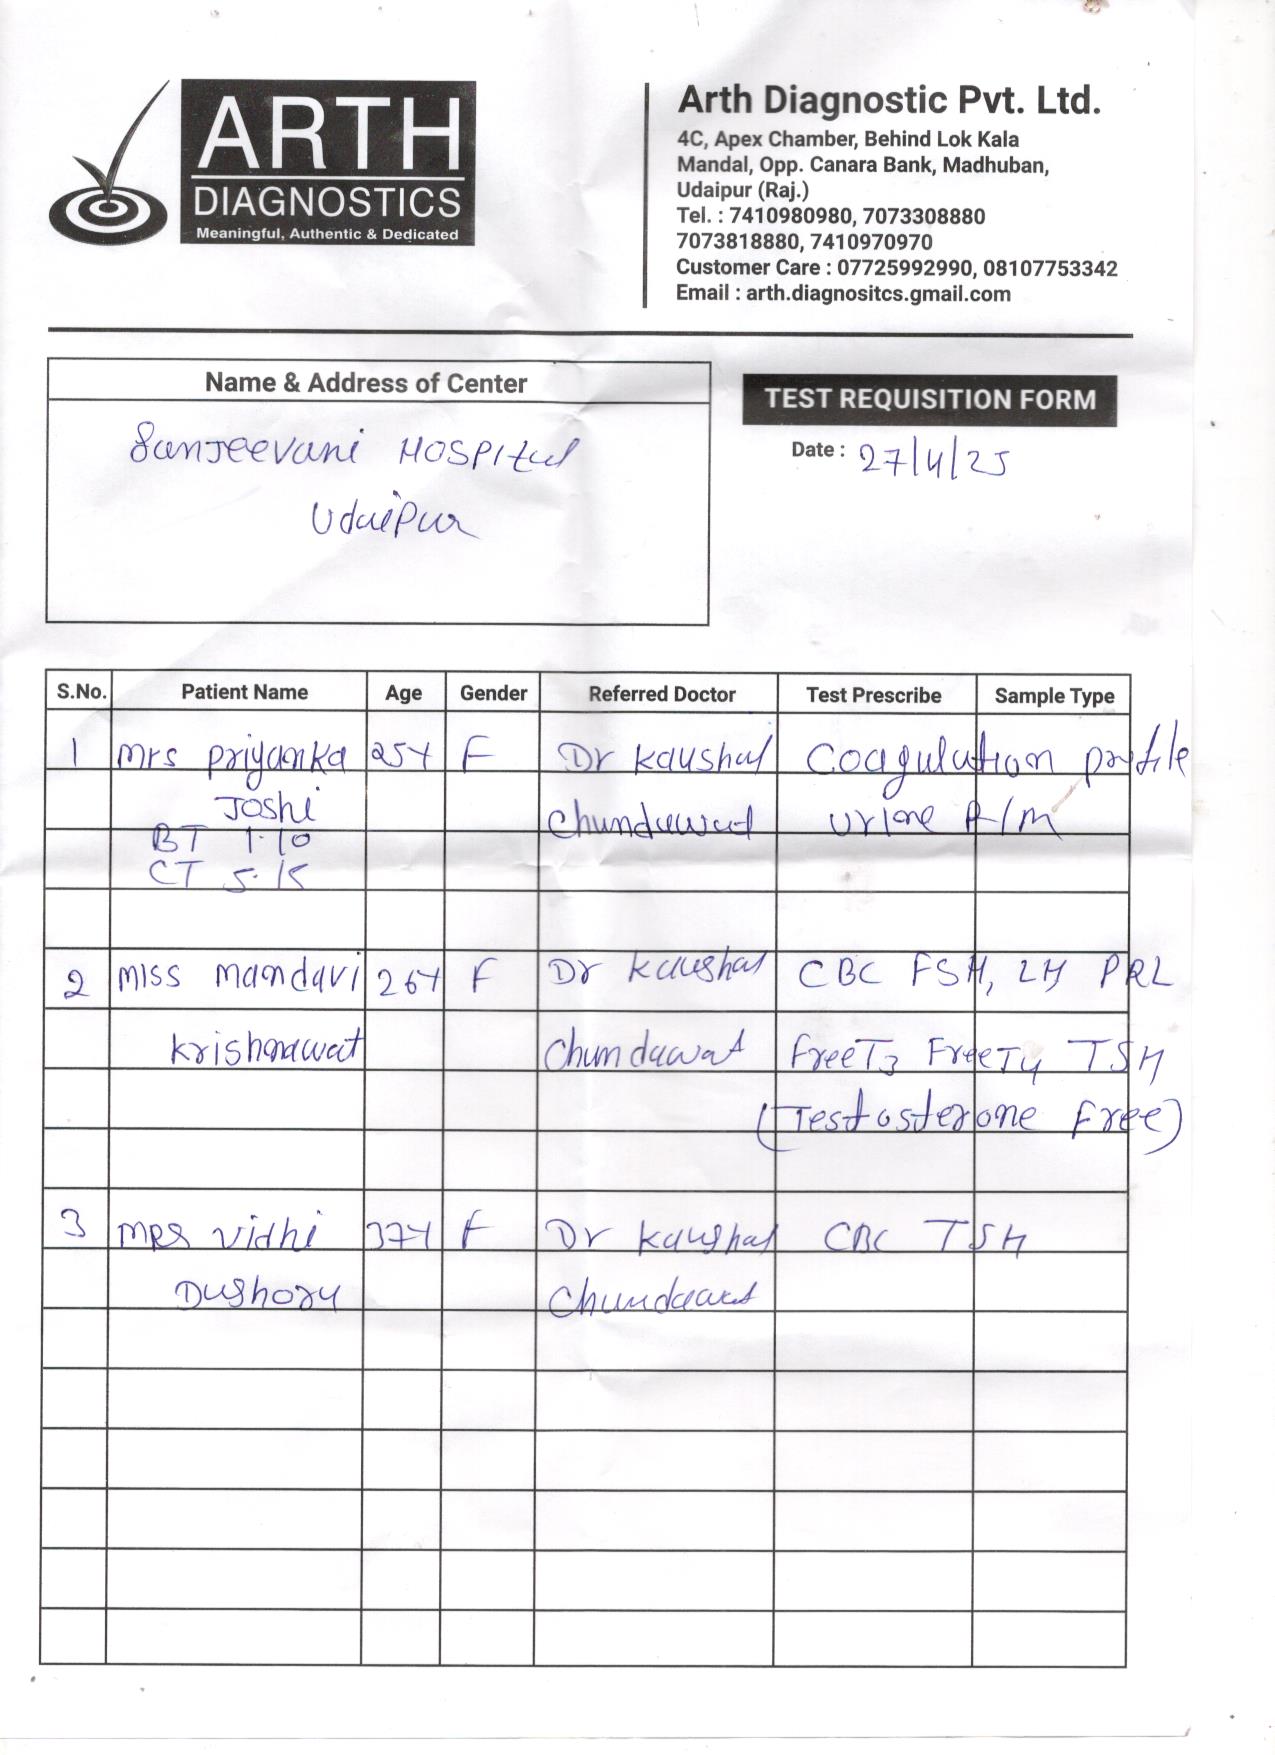 ARTH
DIAGNOSTICS
Meaningful, Authentic & Dedicated
Arth Diagnostic Pvt. Ltd.
4C, Apex Chamber, Behind Lok Kala
Mandal, Opp. Canara Bank, Madhuban,
Udaipur (Raj.)
Tel. : 7410980980, 7073308880
7073818880, 7410970970
Customer Care : 07725992990, 08107753342
Email : arth.diagnositcs.gmail.com
Name & Address of Center
Sanjeevani Hospital
Udaipur
TEST REQUISITION FORM
Date : 27/4/25
S.No. Patient Name Age Gender Referred Doctor Test Prescribe Sample Type
1 Mrs Priyanka 25Y F Dr Kaushal Coagulation profile
Joshi Chundawat Urine R/M
BT 1.10
CT 5.15
2 Miss Mandavi 26Y F Dr Kaushal CBC FSH, LH PRL
Krishnawat Chundawat FreeT3 FreeT4 TSH
(Testosterone Free)
3 Mrs Vidhi 37Y F Dr Kaushal CBC TSH
Chundawat